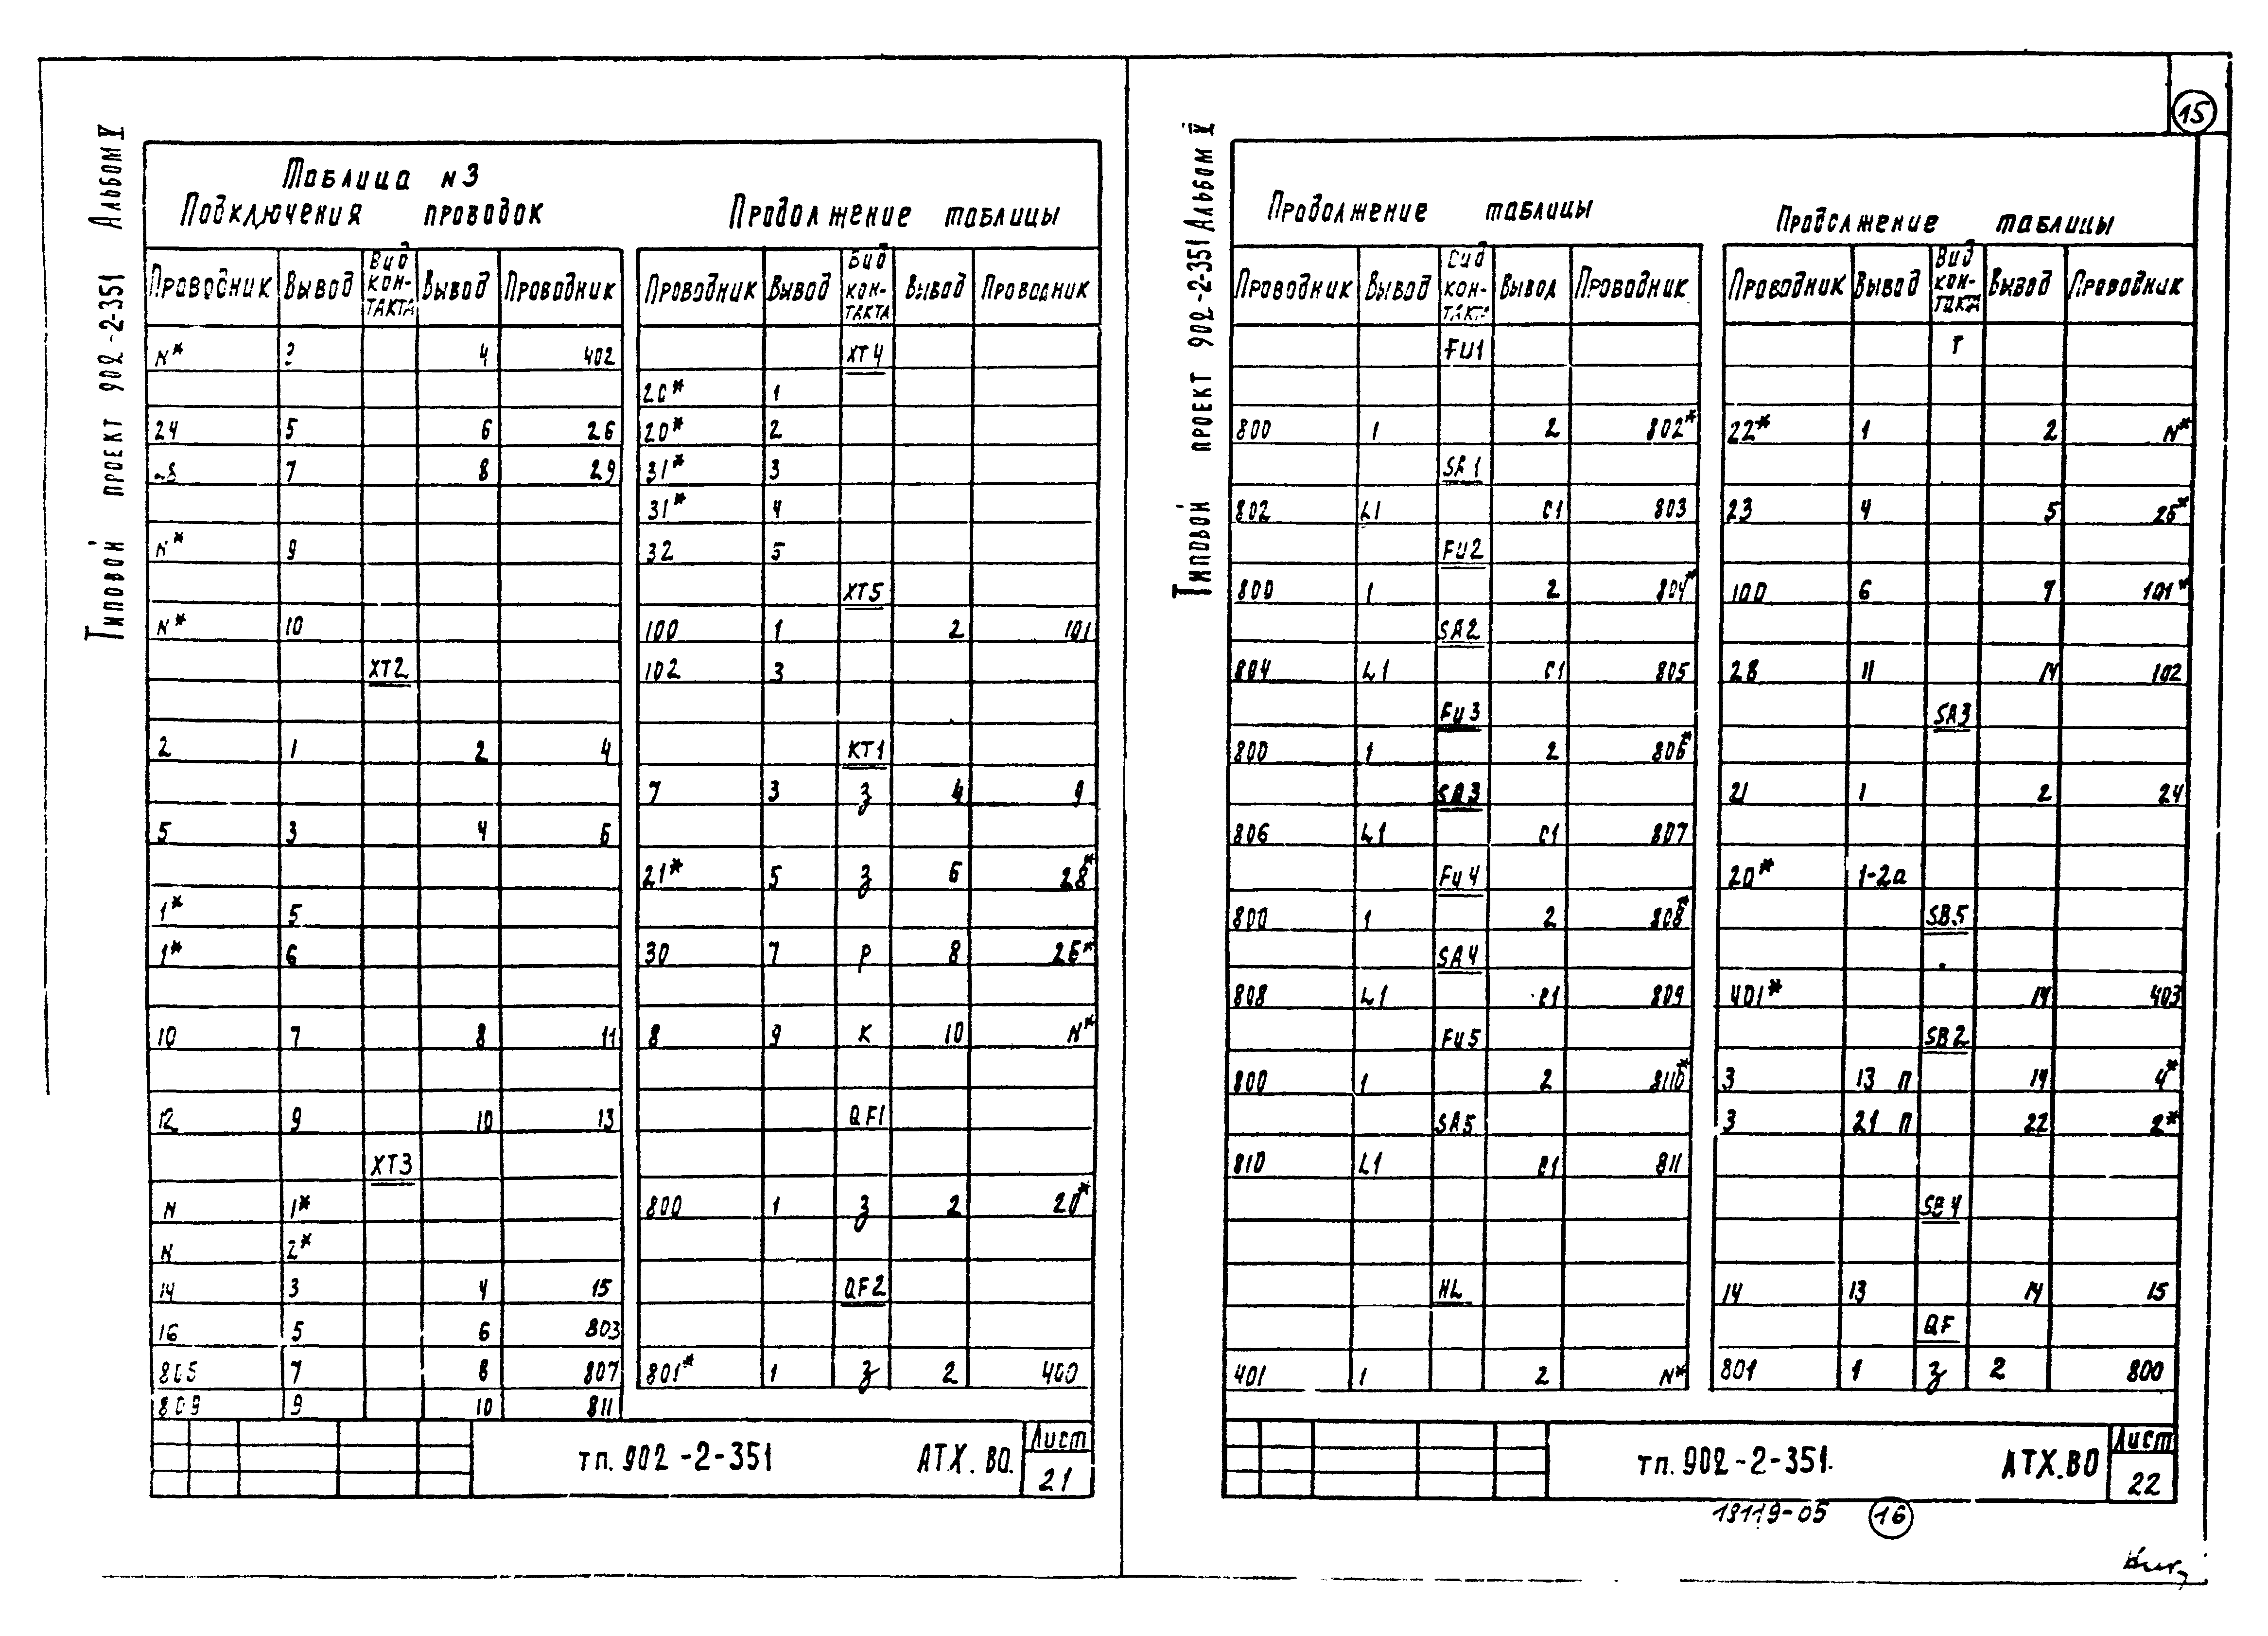 15
Типовой проект 902-2-351 Альбом V
Таблица N3
Подключения проводок
Проводник Вывод Вид кон-такта Вывод Проводник
N* 3 4 402
24 5 6 26
7 8 29
N* 9
N* 10
XT2
2 1 2 4
5 3 4 6
1* 5
1* 6
10 7 8 11
12 9 10 13
XT3
N 1*
N 2*
14 3 4 15
16 5 6 803
805 7 8 807
809 9 10 811
Продолжение таблицы
Проводник Вывод Вид кон-такта Вывод Проводник
XT4
20* 1
20* 2
31* 3
31* 4
32 5
XT5
100 1 2 101
102 3
KT1
7 3 З 4 9
21* 5 З 6 28*
30 7 Р 8 26*
8 9 К 10 N*
QF1
800 1 З 2 20*
QF2
801* 1 З 2 400
тп. 902-2-351 АТХ. ВО. Лист
21
Типовой проект 902-2-351 Альбом V
Продолжение таблицы
Проводник Вывод Вид кон-такта Вывод Проводник
FU1
800 1 2 802*
SA1
802 L1 C1 803
FU2
800 1 2 804*
SA2
804 L1 C1 805
FU3
800 1 2 806*
SA3
806 L1 C1 807
FU4
800 1 2 808*
SA4
808 L1 C1 809
FU5
800 1 2
SA5
810 L1 C1 811
HL
401 1 2 N*
Продолжение таблицы
Проводник Вывод Вид кон-такта Вывод Проводник
Т
22* 1 2 N*
23 4 5 26*
100 6 7 101*
28 11 14 102
SA3
21 1 2 24
20* 1-2а
SB5
401* 14 403
SB2
3 13 П 14 4*
3 21 П 22 2*
SB4
14 13 14 15
QF
801 1 З 2 800
тп. 902-2-351. АТХ.ВО Лист
22
18119-05 16